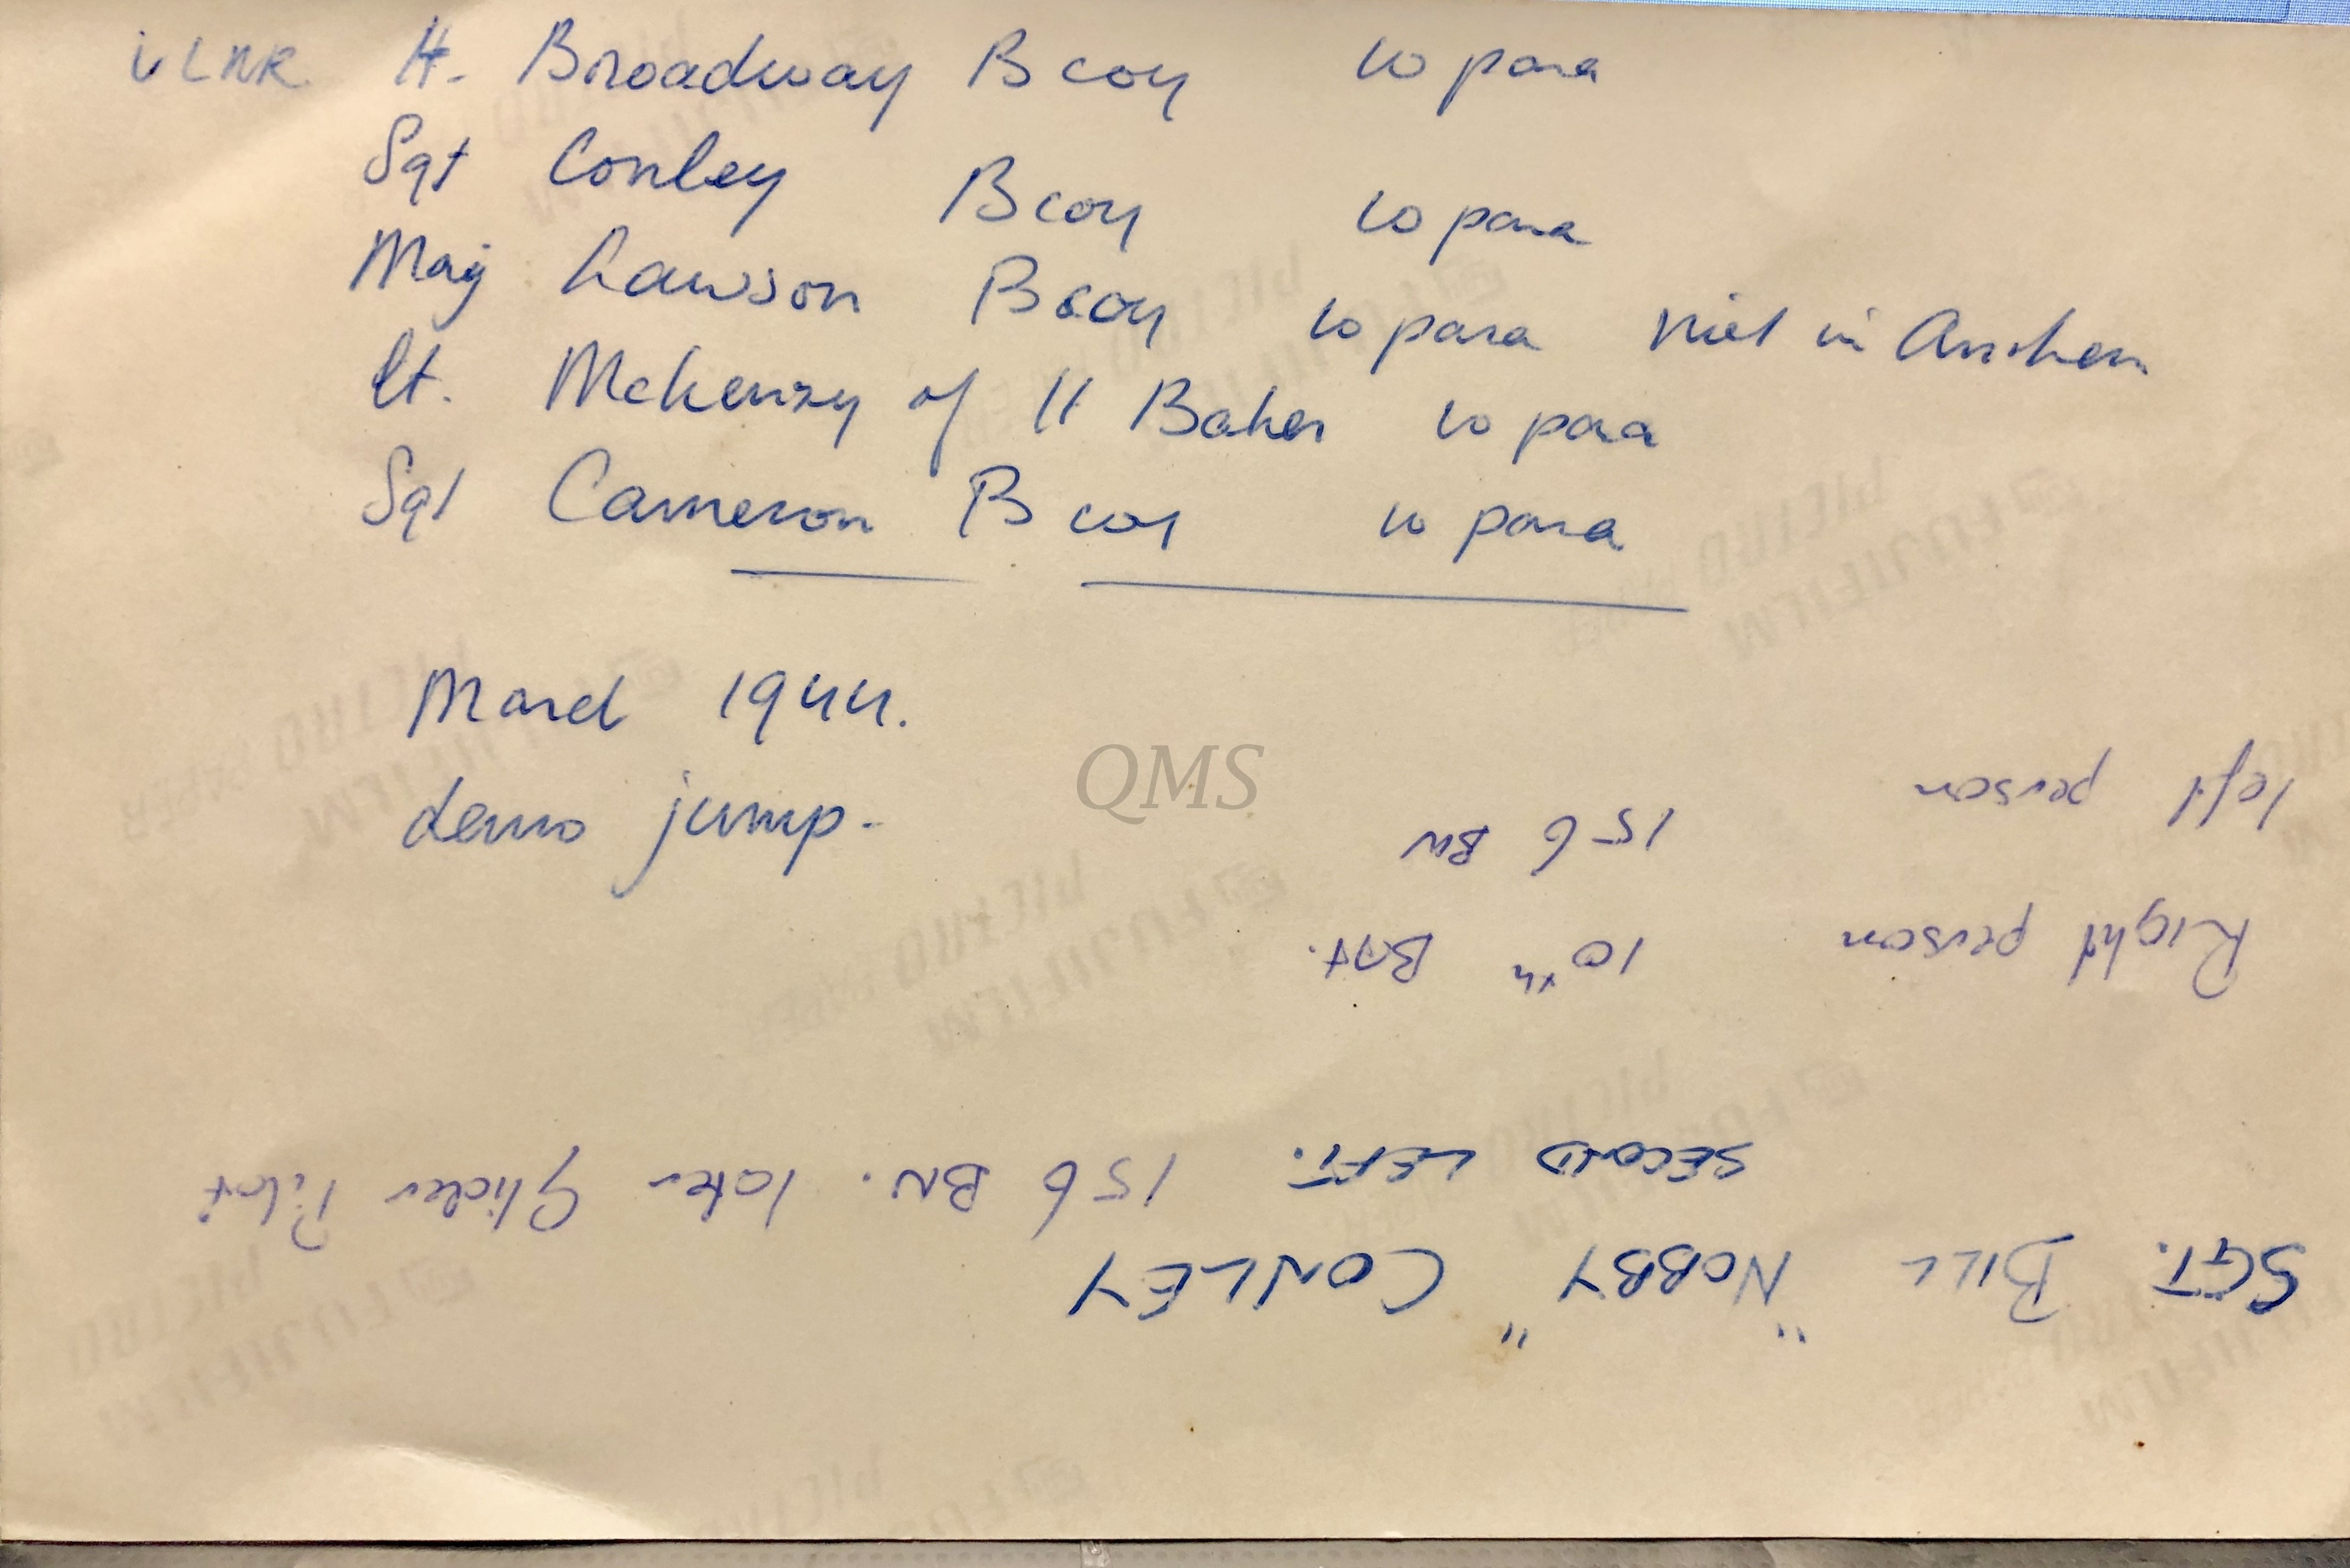 v L NR. H. Broadway B coy 10 para
Sgt Conley B coy 10 para
Maj Lawson B coy 10 para niet in Arnhem
Lt. McKenzy of H Baker 10 para
Sgt Cameron B coy 10 para
March 1944.
demo jump.
QMS
SGT. BILL "NOBBY" CONLEY
SECOND LEFT. 156 BN. later Glider Pilot
Right person 10th BAT.
left person 156 BN